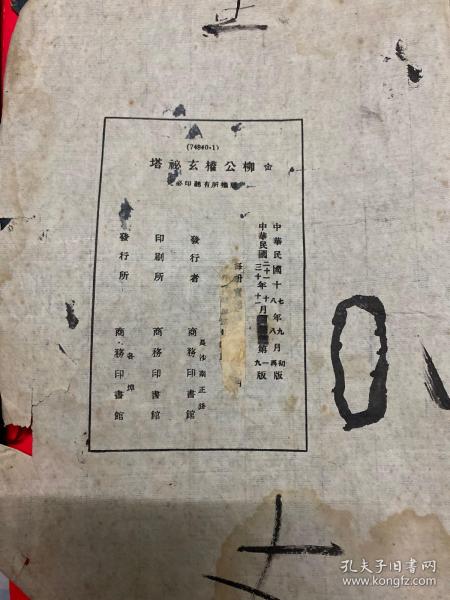 (74840·1)
柳公權玄祕塔
權所有翻印必
中華民國十七年九月初版
中華民國
發行者
長沙南正路
商務印書館
印刷所
商務印書館
發行所
各埠
商務印書館
孔夫子旧书网
www.kongfz.com